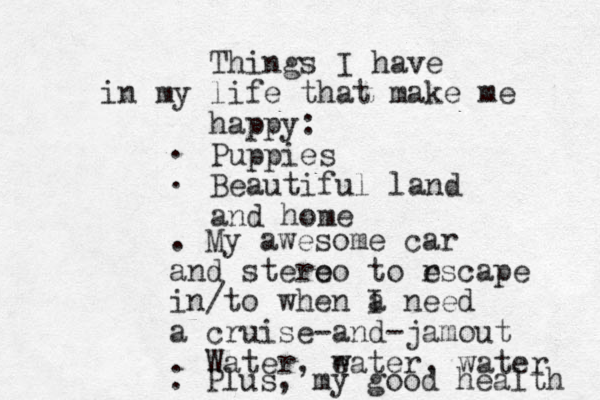 Things I have
in my life that make me
happy:
· Puppies
· Beautiful land
and home
. My awesome car
and stereo to escape
in/to when I need
a cruise-and-jamout
. Water, water, water
. Plus, my good health